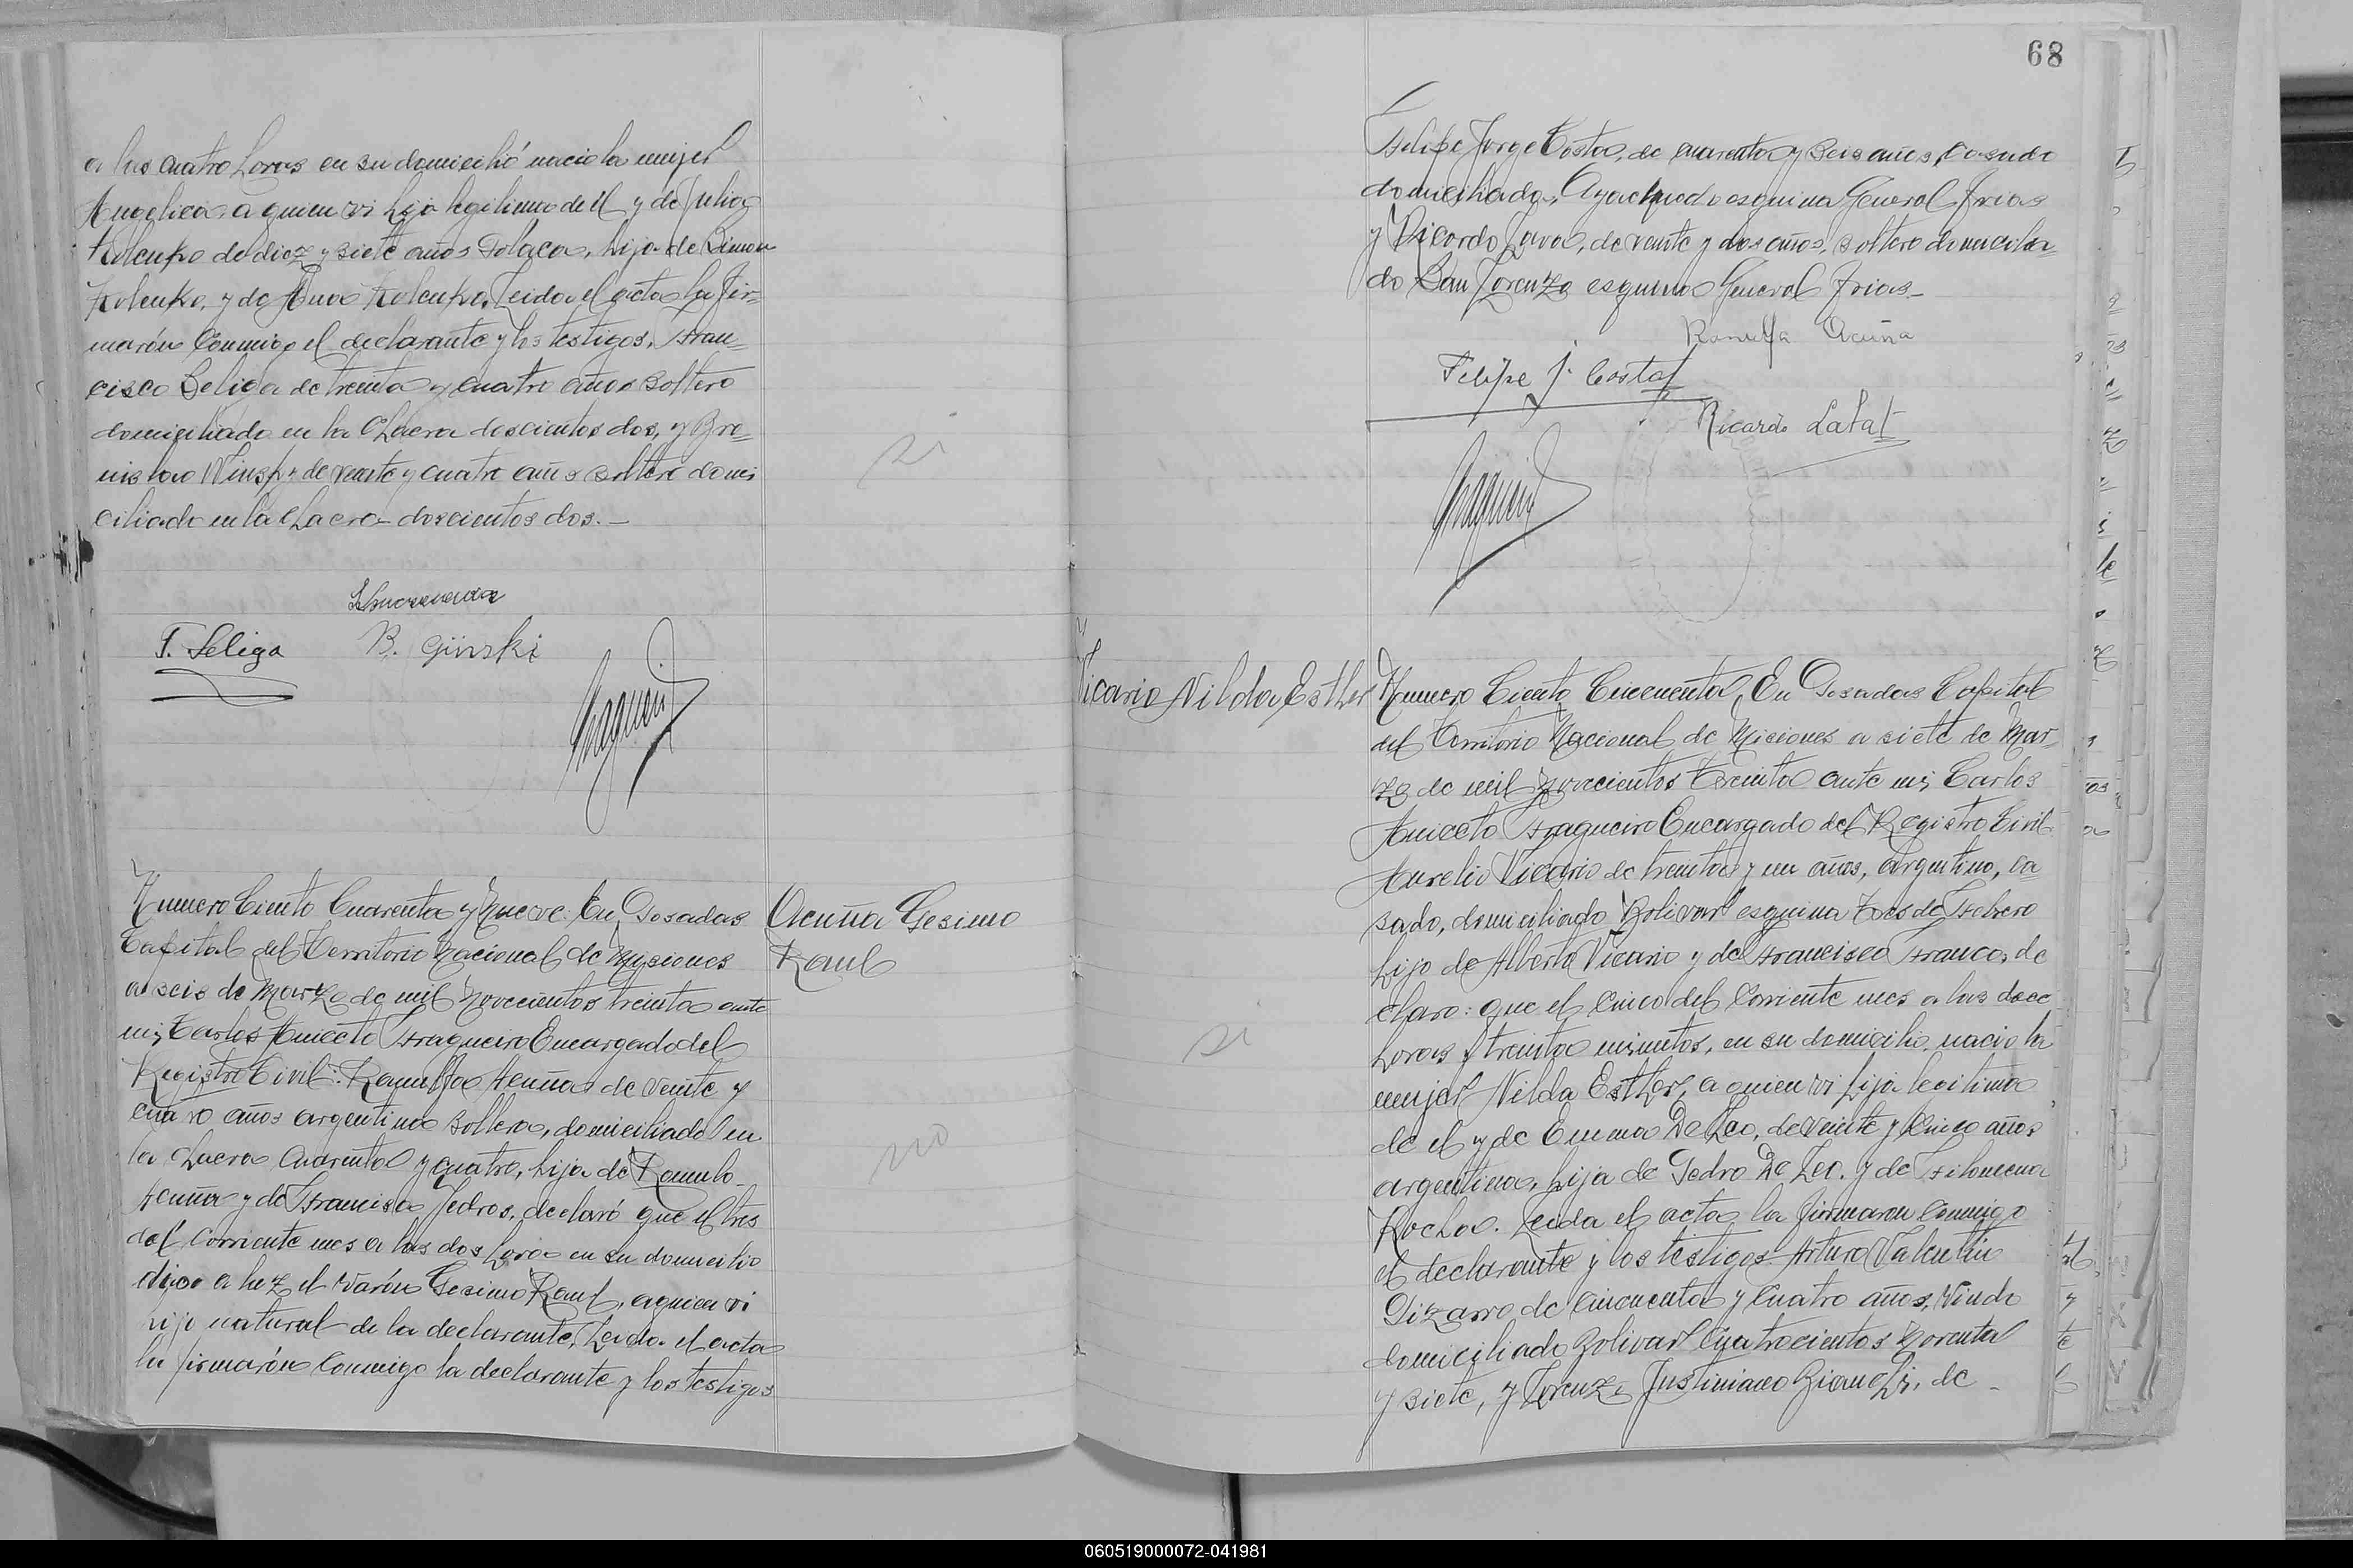 a las cuatro horas en su domicilió nacio la mujer
Angelica a quien vi hija legitima de el y de Julia
Kolenko de diez y siete años Polaca, hija de Simon
Kolenko, y de Ana Kolenko, Leida el acta la fir=
marón Conmigo el declarante y los testigos, Fran=
cisco Seliga de treinta y cuatro años soltero
domiciliado en la Chacra doscientos dos, y Bro=
nislao de veinte y cuatro años soltero domi
ciliado en la Chacra doscientos dos.—
F. Seliga
B. Ginski
Numero Ciento Cuarenta y Nueve: En Posadas
Capital del Territorio Nacional de Misiones
a seis de Marzo de mil Novecientos treinta ante
mi, Carlos Aniceto Fragueiro Encargado del
Registro Civil: Ranulfa Acuña de veinte y
cuatro años argentina soltera, domiciliado en
la Chacra Cuarenta y cuatro, hija de Romulo
Acuña y de Francisca Jedros, declaró que el tres
del Corriente mes a las dos horas en su domicilio
dijo a luz el varón Gesimo Raul, a quien vi
hijo natural de la declarante, Leida el acta
la firmarón Conmigo la declarante y los testigos
Acuña Gesimo
Raul
si
no
68
Felipe Jorge Costa, de cuarenta y seis años, Casado
domiciliado, Ayacucho esquina General Frias
y Ricardo, de veinte y dos años, soltero domicilia
do San Lorenzo esquina General Frias—
Ranulfa Acuña
Felipe J. Costa
Ricardo Lafat
Vicario Nilda Esther
si
Numero Ciento Cincuenta, En Posadas Capital
del Territorio Nacional de Misiones a siete de Mar=
zo de mil Novecientos treinta ante mi, Carlos
Aniceto Fragueiro Encargado del Registro Civil.
Aurelio Vicario de treinta y un años, argentino, ca
sado, domiciliado Bolivar esquina tres de Febrero
hijo de Alberto Vicario y de Francisca Franco, de
claro: que el Cinco del Corriente mes a las doce
horas y treinta minutos, en su domicilio nacio la
mujer Nilda Esther, a quien vi hija legitima
de el y de Emma De Leo, de veinte y Cinco años
argentina, hija de Pedro De Leo, y de Filomena
Rocha. Leida el acta la firmaron Conmigo
el declarante y los testigos Arturo Valentin
Pizarro de Cincuenta y Cuatro años, Viudo
domiciliado Bolivar Cuatrocientos Noventa
y siete, y Lorenzo Justiniano Bianchi, de
060519000072-041981